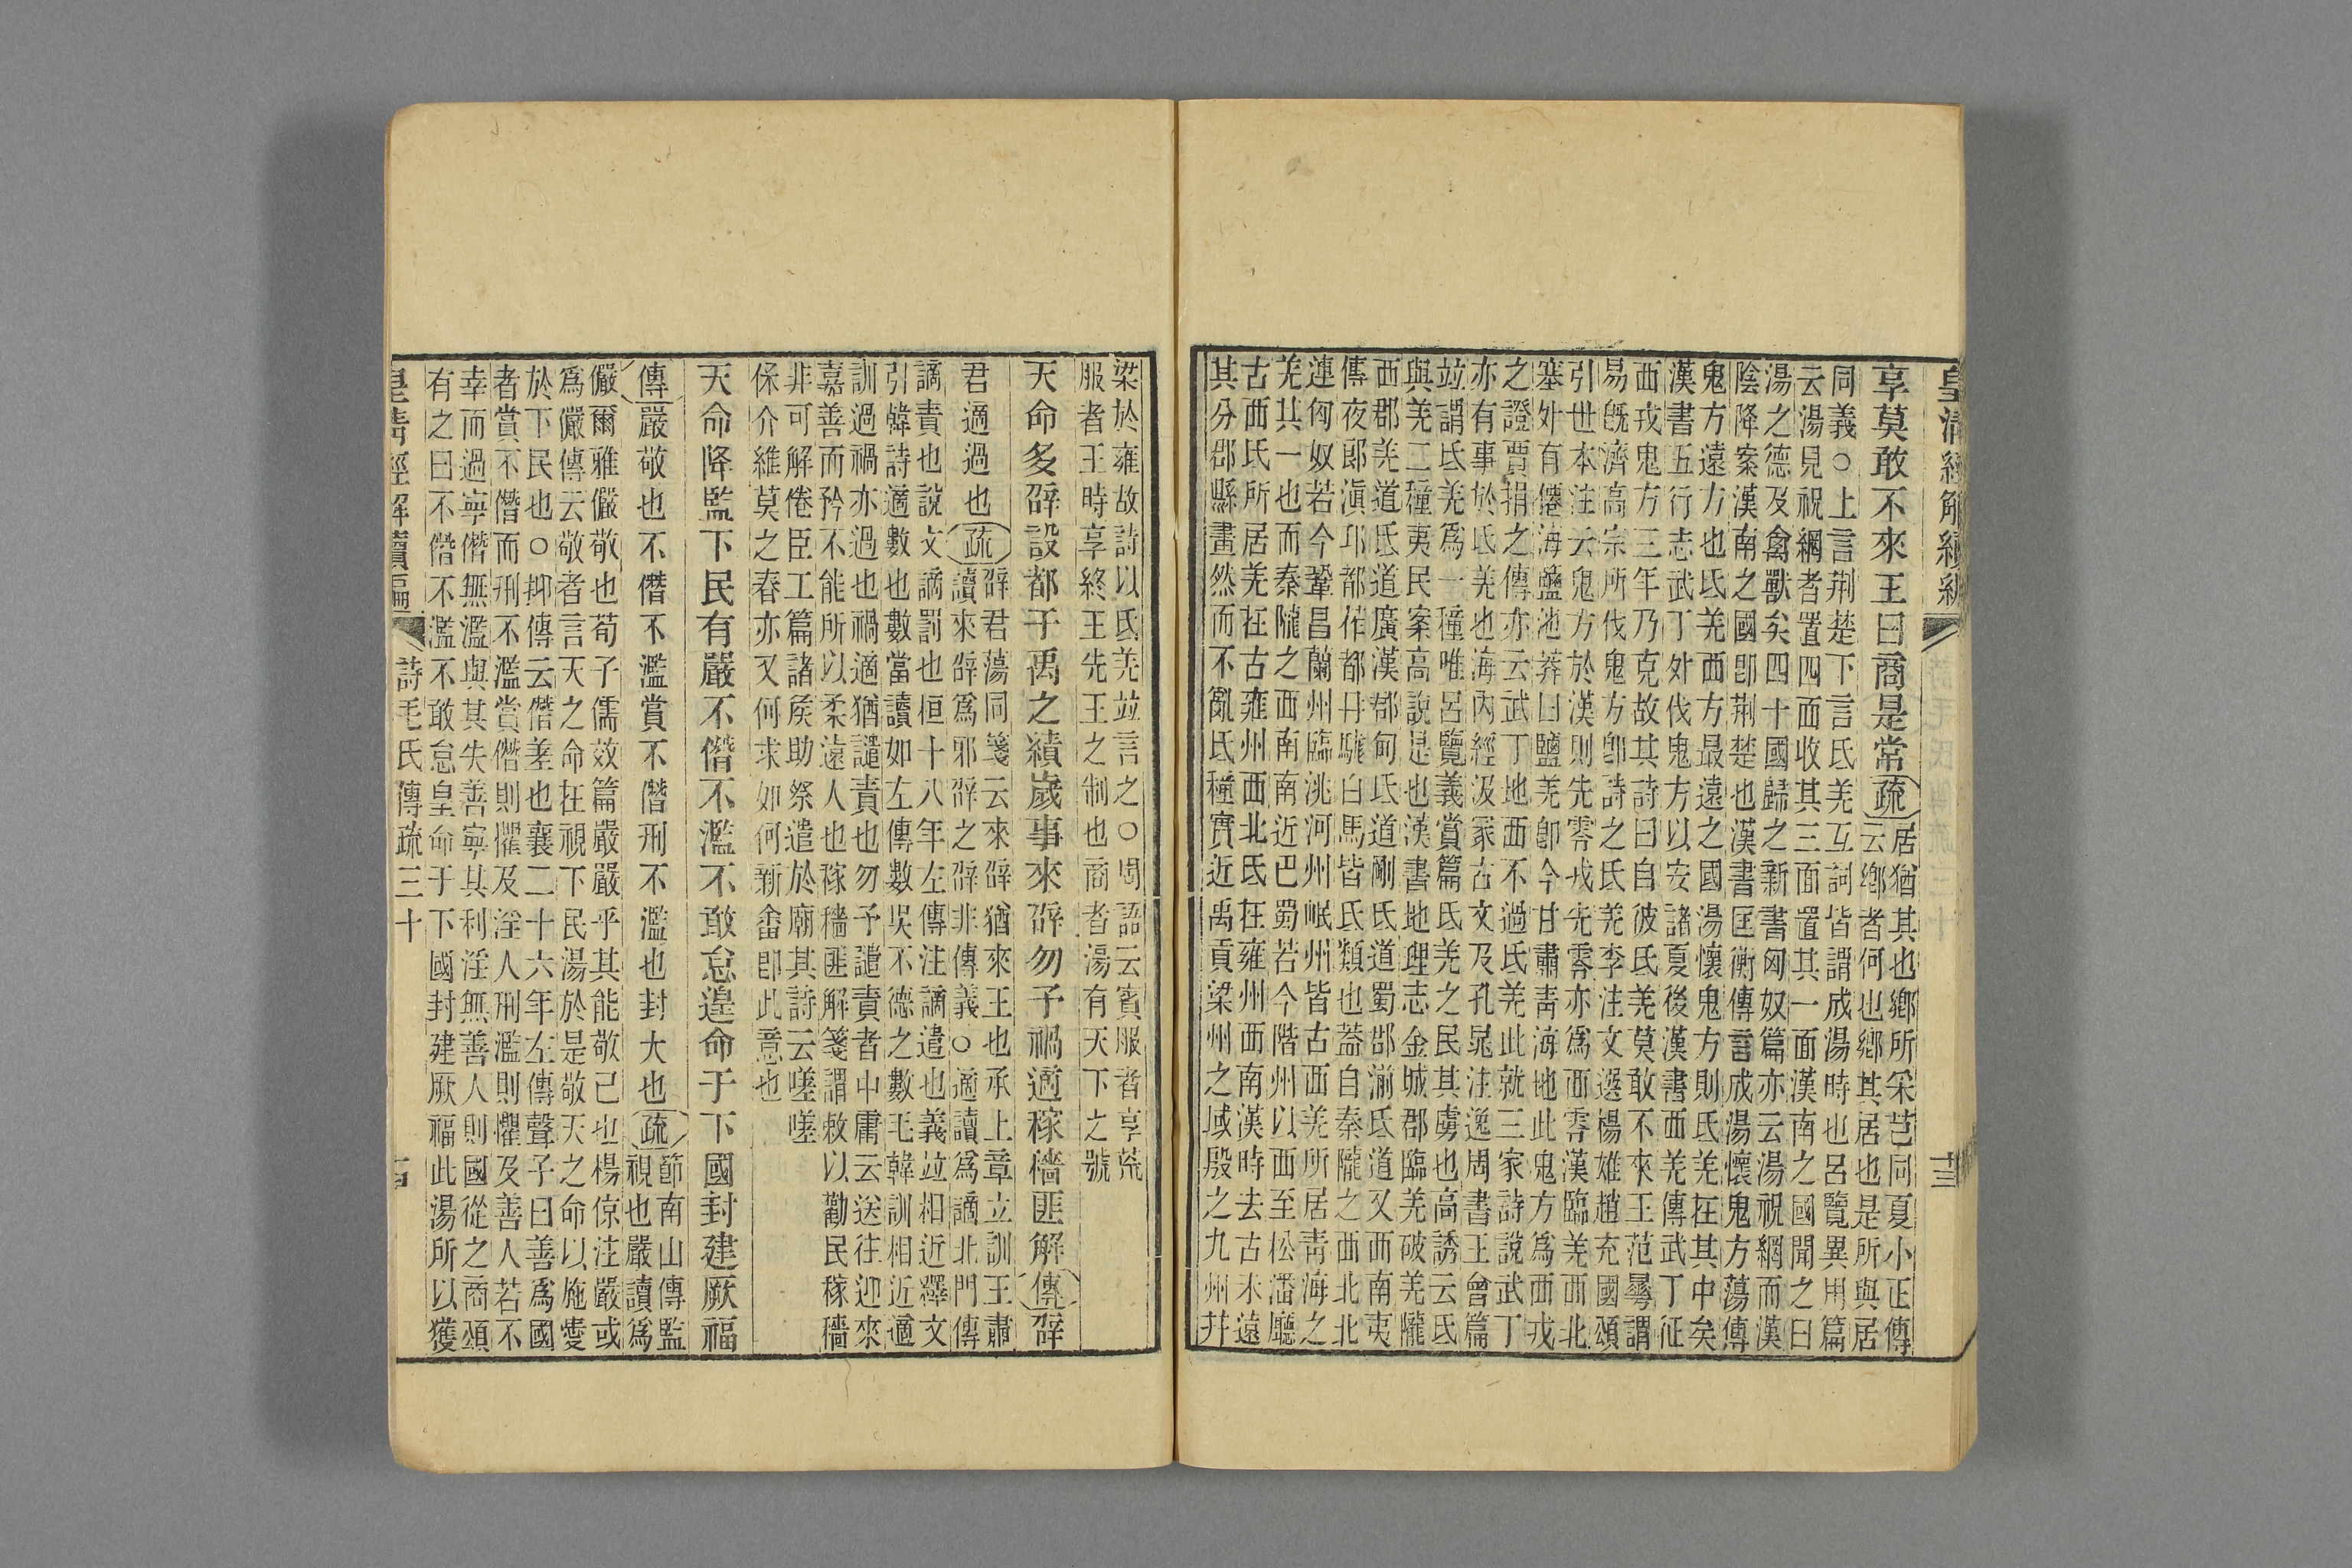 皇清經解續編
享莫敢不來王曰商是常疏居猶其也鄉所采芑同夏小正傳
云鄉者何也鄉其居也是所與居
同義○上言荆楚下言氐羌互詞皆謂成湯時也呂覽異用篇
云湯見祝網者置四面收其三面置其一面漢南之國聞之曰
湯之德及禽獸矣四十國歸之新書匈奴篇亦云湯祝網而漢
陰降案漢南之國卽荆楚也漢書匡衡傳言成湯懷鬼方蕩傳
鬼方遠方也氐羌西方最遠之國湯懷鬼方則氐羌在其中矣
漢書五行志武丁外伐鬼方以安諸夏後漢書西羌傳武丁征
西戎鬼方三年乃克故其詩曰自彼氐羌莫敢不來王范曅謂
易旣濟高宗所伐鬼方卽詩之氐羌李注文選楊雄趙充國頌
引世本注云鬼方於漢則先零戎先零亦爲西零漢臨羌西北
塞外有僊海鹽池莽曰鹽羌卽今甘肅靑海地此鬼方爲西戎
之證賈捐之傳亦云武丁地西不過氐羌此就三家詩說武丁
亦有事於氐羌也海內經汲冡古文及孔晁注逸周書王會篇
竝謂氐羌爲一種唯呂覽義賞篇氐羌之民其虜也高誘云氐
與羌二種夷民案高說是也漢書地理志金城郡臨羌破羌隴
西郡羌道氐道廣漢郡甸氐道剛氐道蜀郡湔氐道又西南夷
傳夜郞滇邛都莋都冄駹白馬皆氐類也葢自秦隴之西北北
連匈奴若今鞏昌蘭州臨洮河州岷州皆古西羌所居靑海之
羌其一也而秦隴之西南南近巴蜀若今階州以西至松潘廳
古西氐所居羌在古雍州西北氐在雍州西南漢時去古未遠
其分郡縣畫然而不亂氐種實近禹貢梁州之域殷之九州幷
十三
梁於雍故詩以氐羌竝言之○周語云賓服者享荒
服者王時享終王先王之制也商者湯有天下之號
天命多辟設都于禹之績歲事來辟勿予禍適稼穡匪解傳辟
君適過也疏辟君蕩同箋云來辟猶來王也承上章立訓王肅
讀來辟爲邪辟之辟非傳義○適讀爲謫北門傳
謫責也說文謫罰也桓十八年左傳注謫遣也義竝相近繹文
引韓詩適數也數當讀如左傳數吳不德之數毛韓訓相近適
訓過禍亦過也禍適猶譴責也勿予譴責者中庸云送往迎來
嘉善而矜不能所以柔遠人也稼穡匪解箋謂敕以勸民稼穡
非可解倦臣工篇諸矦助祭遣於廟其詩云嗟嗟
保介維莫之春亦又何求如何新畬卽此意也
天命降監下民有嚴不僭不濫不敢怠遑命于下國封建厥福
傳嚴敬也不僭不濫賞不僭刑不濫也封大也疏節南山傳監
視也嚴讀爲
儼爾雅儼敬也荀子儒效篇嚴嚴乎其能敬己也楊倞注嚴或
爲儼傳云敬者言天之命在視下民湯於是敬天之命以施愛
於下民也○抑傳云僭差也襄二十六年左傳聲子曰善爲國
者賞不僭而刑不濫賞僭則懼及淫人刑濫則懼及善人若不
幸而過寧僭無濫與其失善寧其利淫無善人則國從之商頌
有之曰不僭不濫不敢怠皇命于下國封建厥福此湯所以獲
皇清經解續編
詩毛氏傳疏三十
十四